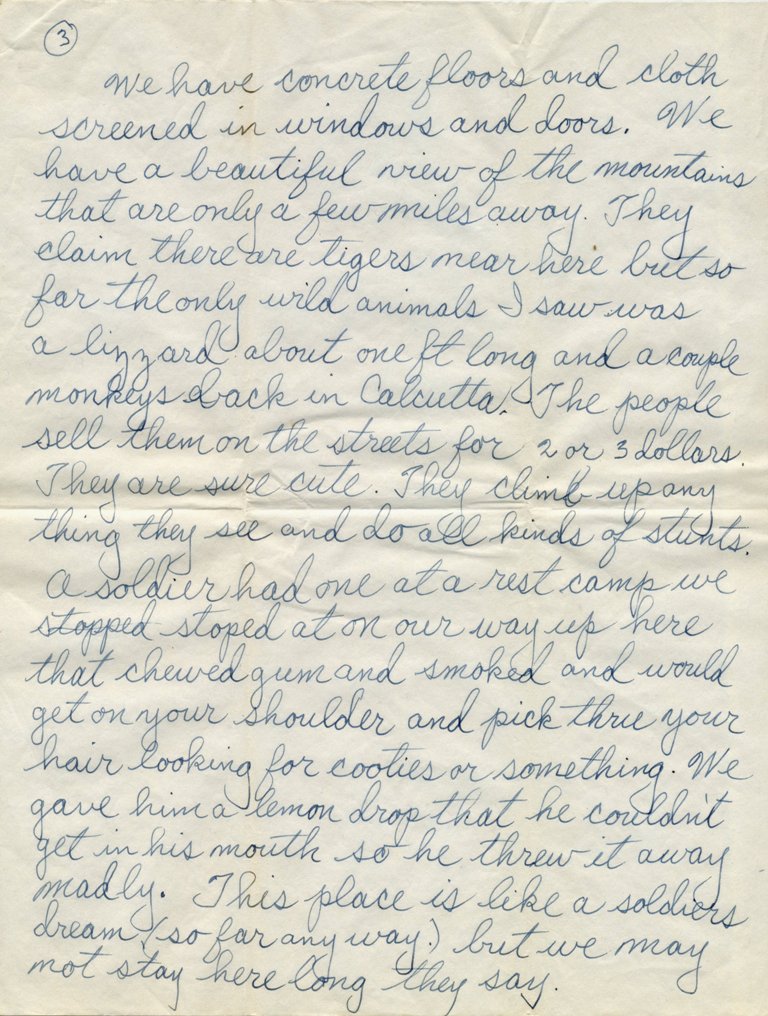 3
We have concrete floors and cloth
screened in windows and doors. We
have a beautiful view of the mountains
that are only a few miles away. They
claim there are tigers near here but so
far the only wild animals I saw was
a lizzard about one ft long and a couple
monkeys back in Calcutta. The people
sell them on the streets for 2 or 3 dollars.
They are sure cute. They climb up any
thing they see and do all kinds of stunts.
A soldier had one at a rest camp we
stopped stoped at on our way up here
that chewed gum and smoked and would
get on your shoulder and pick thru your
hair looking for cooties or something. We
gave him a lemon drop that he couldn't
get in his mouth so he threw it away
madly. This place is like a soldiers
dream (so far any way.) but we may
not stay here long they say.